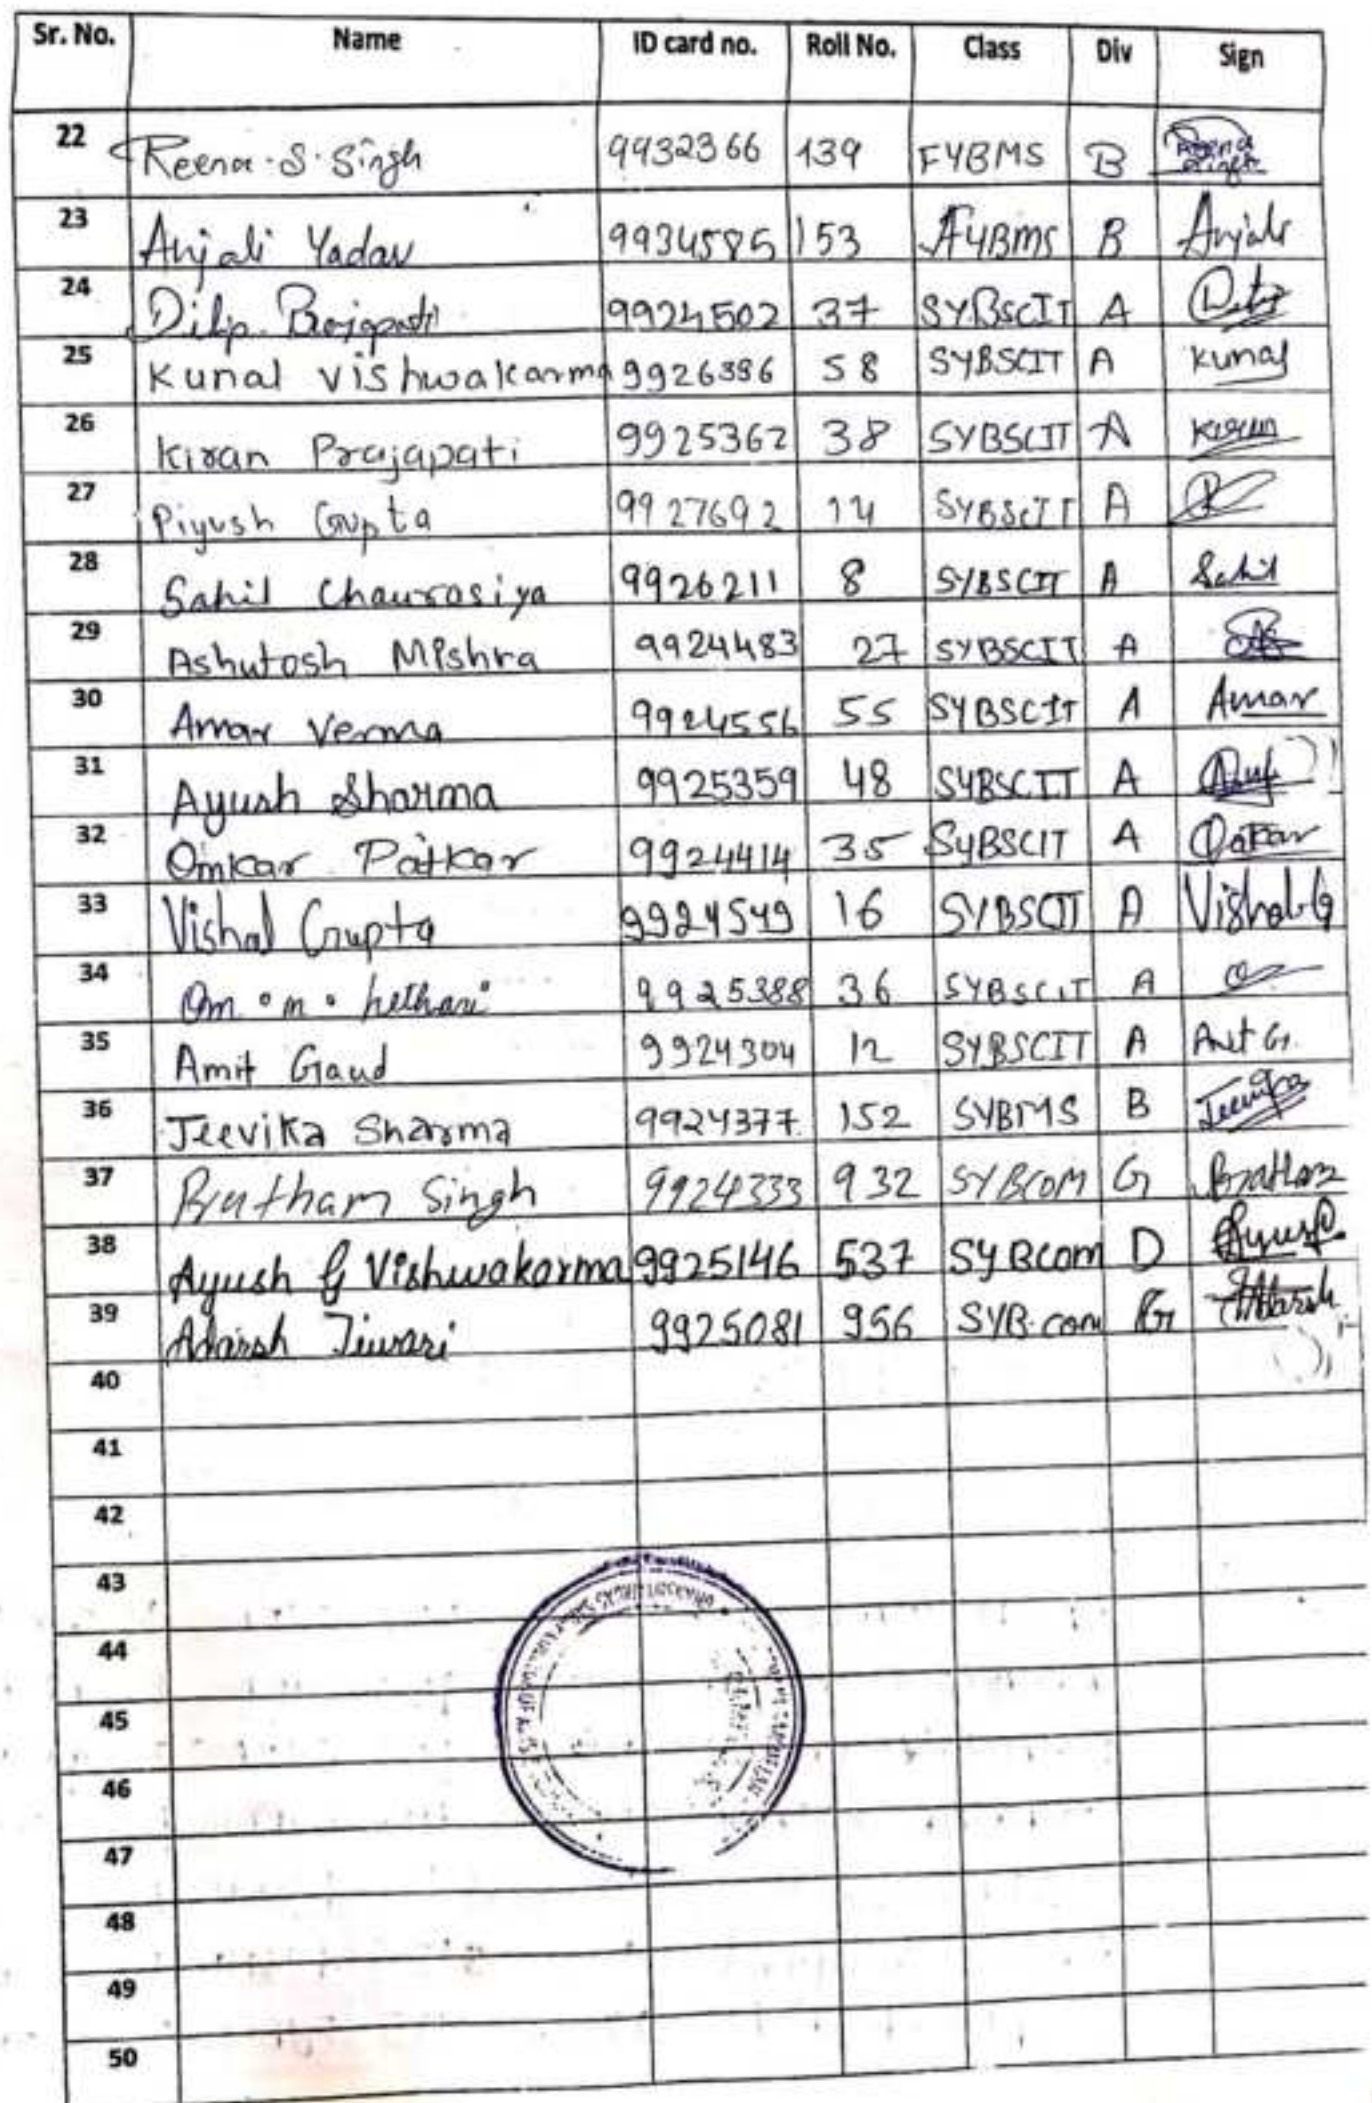 Sr. No. Name ID card no. Roll No. Class Div Sign
22 Reena S. Singh 9932366 139 FYBMS B Reena Singh
23 Anjali Yadav 9934585 153 FYBMS B Anjali
24 Dilip Prajapati 9924502 37 SYBSCIT A
25 Kunal Vishwakarma 9926386 58 SYBSCIT A Kunal
26 Kiran Prajapati 9925362 38 SYBSCIT A Kiran
27 Piyush Gupta 9927692 14 SYBSCIT A
28 Sahil Chaurasiya 9926211 8 SYBSCIT A Sahil
29 Ashutosh Mishra 9924483 27 SYBSCIT A
30 Amar Verma 9924556 55 SYBSCIT A Amar
31 Ayush Sharma 9925359 48 SYBSCIT A
32 Omkar Patkar 9924414 35 SYBSCIT A
33 Vishal Gupta 9924549 16 SYBSCIT A Vishal G
34 Om . m . 9925388 36 SYBSCIT A
35 Amit Gaud 9924304 12 SYBSCIT A Amit G.
36 Jeevika Sharma 9924377 152 SYBMS B Jeevika
37 Pratham Singh 9924333 932 SYBCOM G Pratham
38 Ayush G Vishwakarma 9925146 537 SYBCom D Ayush
39 Adarsh Tiwari 9925081 956 SYB.com G Adarsh
40
41
42
43
44
45
46
47
48
49
50